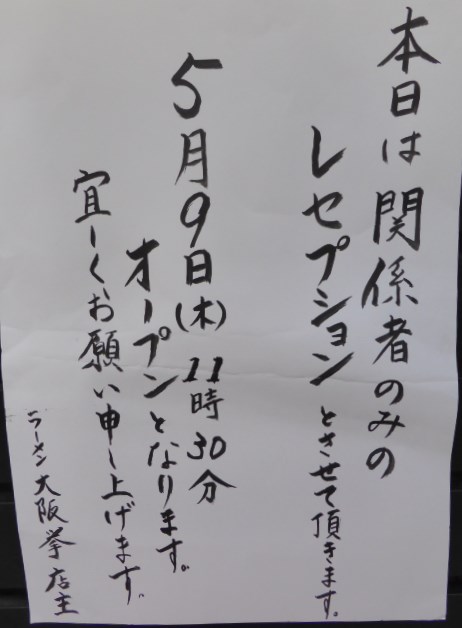 本日は関係者のみの
レセプションとさせて頂きます。
5月9日(木)11時30分
オープンとなります。
宜しくお願い申し上げます。
ラーメン大阪挙店主